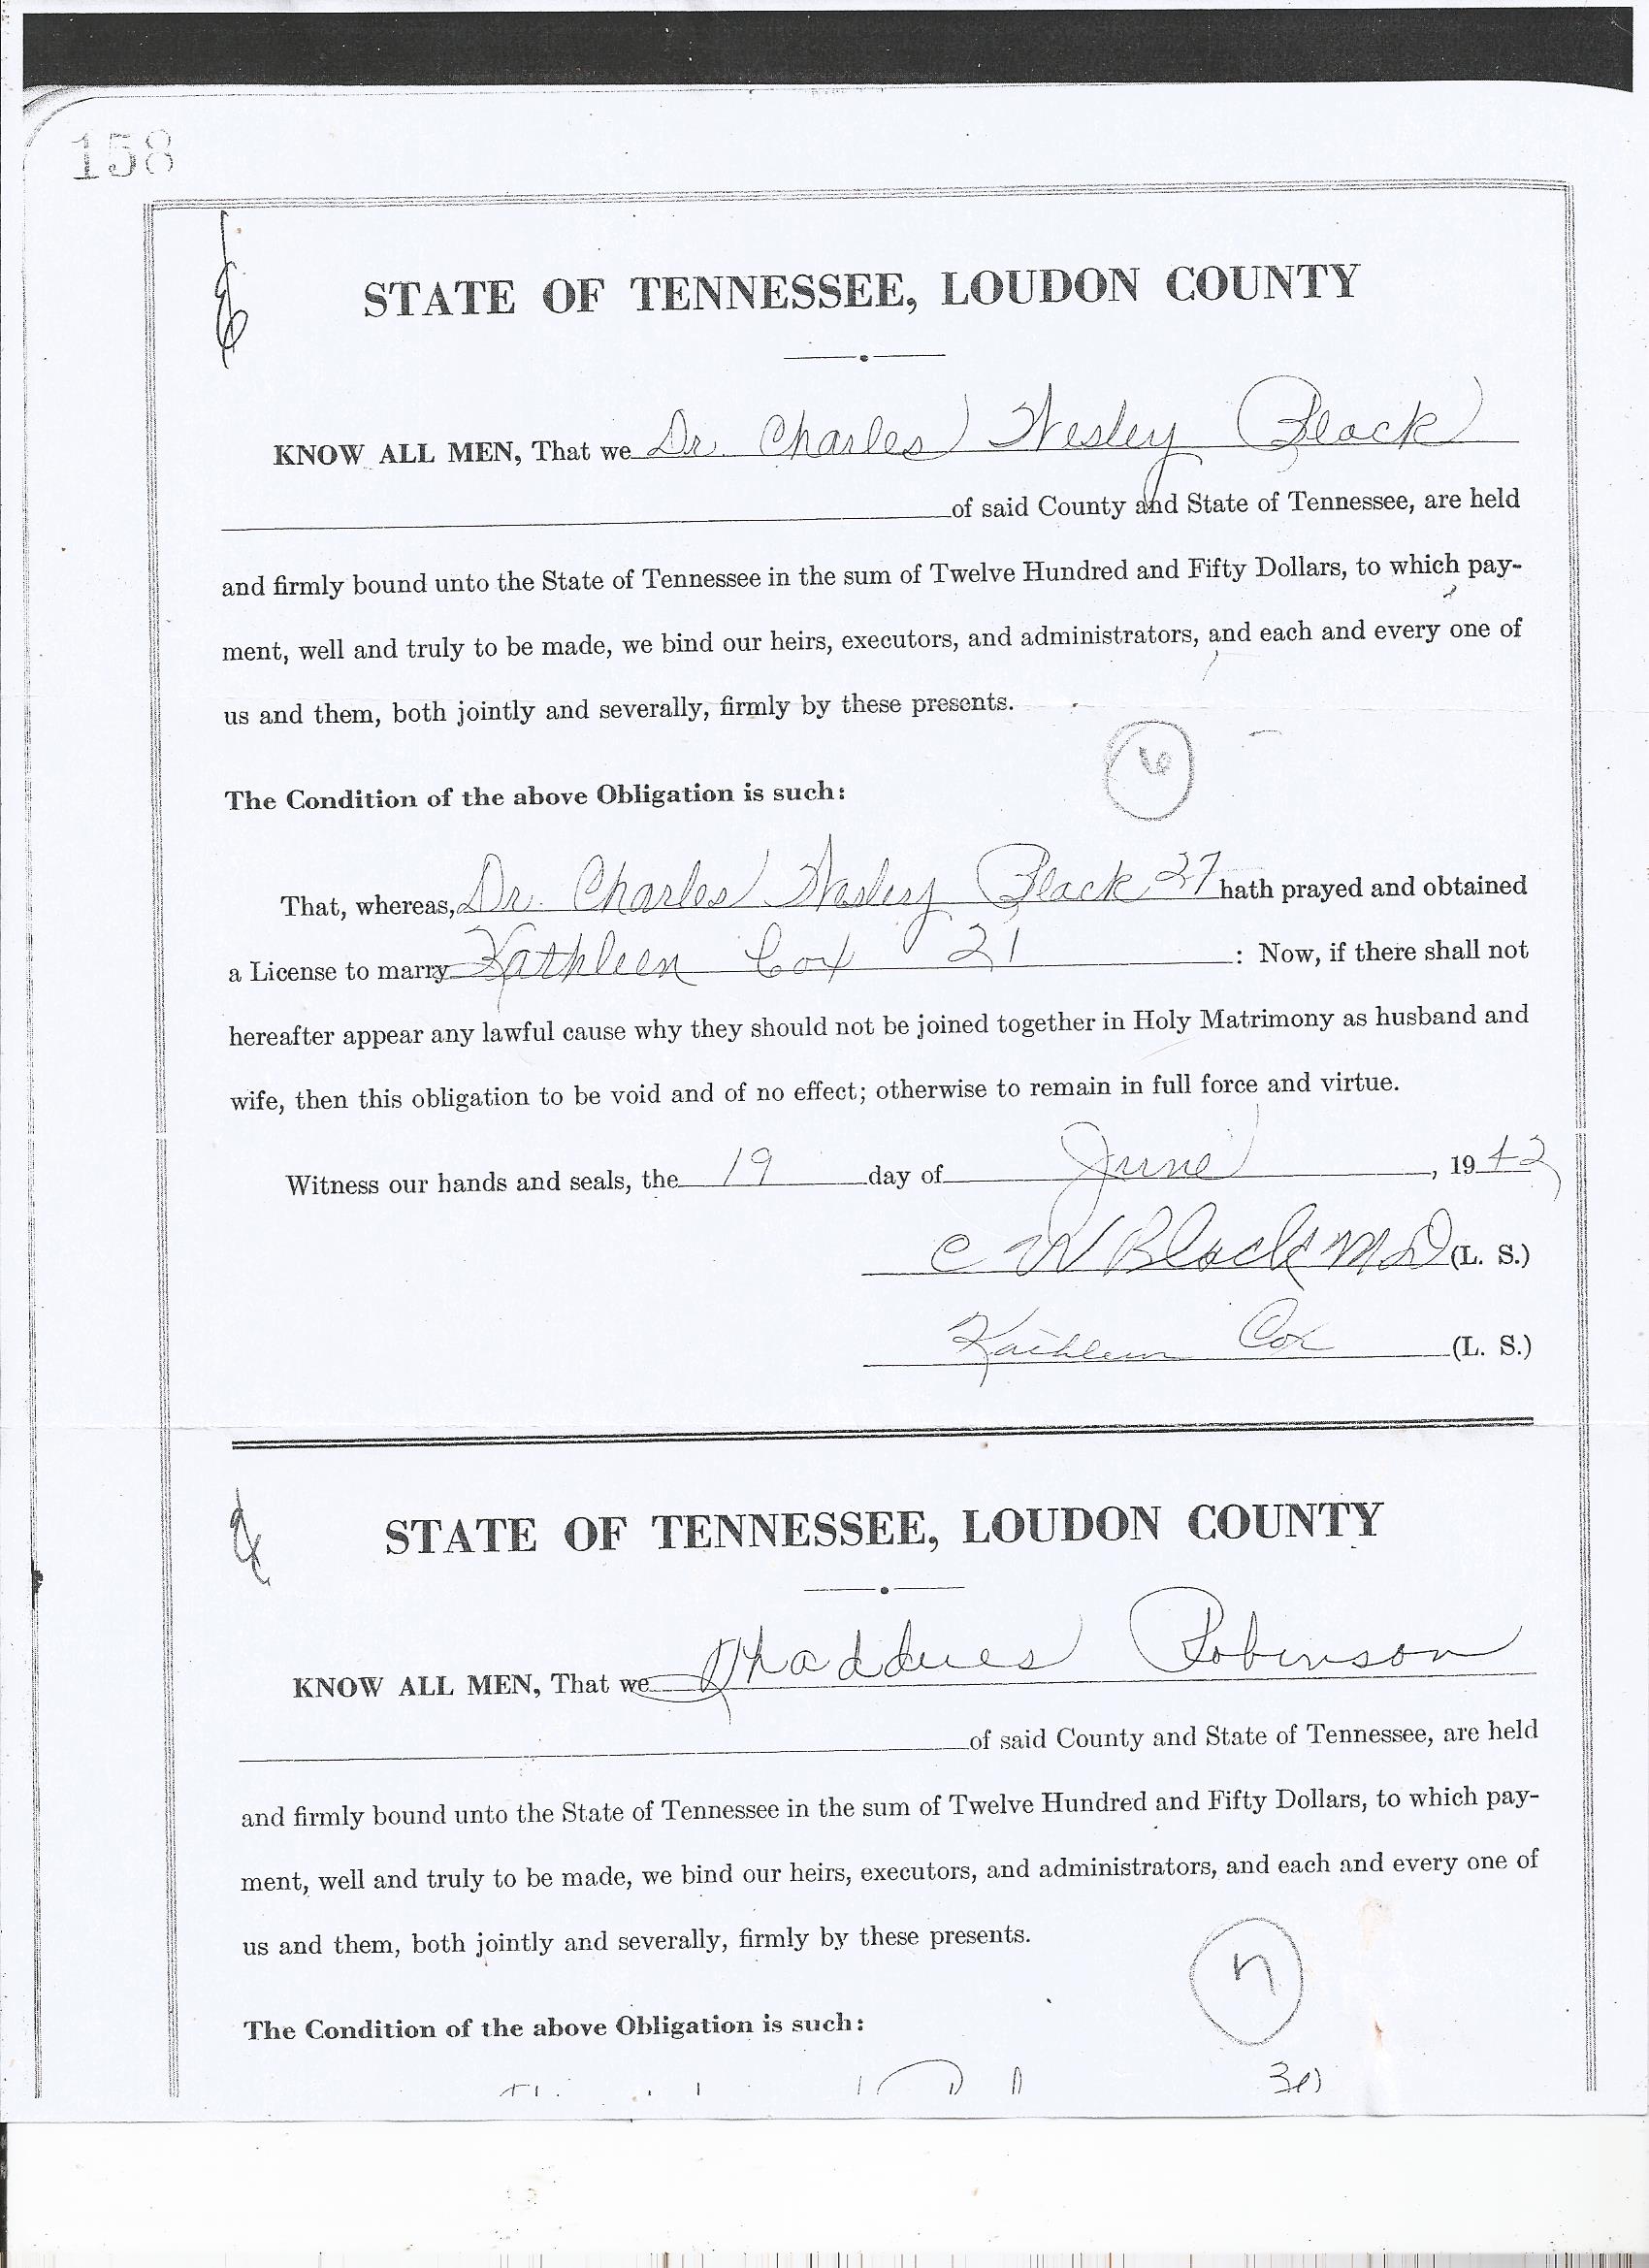 158
STATE OF TENNESSEE, LOUDON COUNTY
KNOW ALL MEN, That we Dr. Charles Wesley Black
of said County and State of Tennessee, are held
and firmly bound unto the State of Tennessee in the sum of Twelve Hundred and Fifty Dollars, to which pay-
ment, well and truly to be made, we bind our heirs, executors, and administrators, and each and every one of
us and them, both jointly and severally, firmly by these presents.
The Condition of the above Obligation is such:
That, whereas, Dr. Charles Wesley Black 27 hath prayed and obtained
a License to marry Kathleen Cox 21 : Now, if there shall not
hereafter appear any lawful cause why they should not be joined together in Holy Matrimony as husband and
wife, then this obligation to be void and of no effect; otherwise to remain in full force and virtue.
Witness our hands and seals, the 19 day of June, 1942
C W Black MD (L. S.)
Kathleen Cox (L. S.)
STATE OF TENNESSEE, LOUDON COUNTY
KNOW ALL MEN, That we Thaddues Robinson
of said County and State of Tennessee, are held
and firmly bound unto the State of Tennessee in the sum of Twelve Hundred and Fifty Dollars, to which pay-
ment, well and truly to be made, we bind our heirs, executors, and administrators, and each and every one of
us and them, both jointly and severally, firmly by these presents.
The Condition of the above Obligation is such: